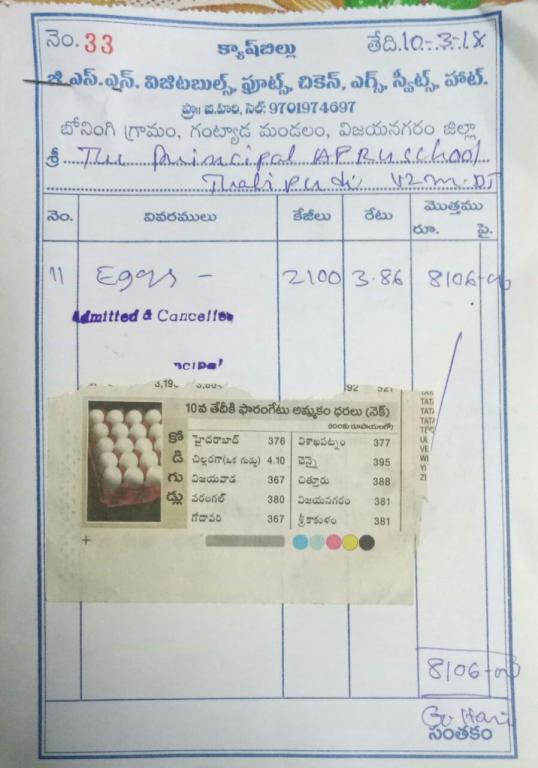 నెం. 33 క్యాష్‌బిల్లు తేది.10-3-18
జి.ఎస్.ఎన్. విజిటబుల్స్, ఫ్రూట్స్, చికెన్, ఎగ్స్, స్వీట్స్, హాట్.
ప్రొ॥ జి.హరి, సెల్: 9701974697
బోనింగి గ్రామం, గంట్యాడ మండలం, విజయనగరం జిల్లా
శ్రీ The Principal APRU School
Thatipudi VZM. DT
నెం. వివరములు కేజీలు రేటు మొత్తము
రూ. పై.
11 Eggs - 2100 3.86 8106-00
Admitted & Cancelled
10వ తేదీకి ఫారంగేటు అమ్మకం ధరలు (నెక్)
(100కు రూపాయలలో)
కోడి గుడ్లు
హైదరాబాద్ 376 విశాఖపట్నం 377
చిల్లరగా(ఒక గుడ్డు) 4.10 చెన్నై 395
విజయవాడ 367 చిత్తూరు 388
వరంగల్ 380 విజయనగరం 381
గోదావరి 367 శ్రీకాకుళం 381
8106-00
G. Hari
సంతకం